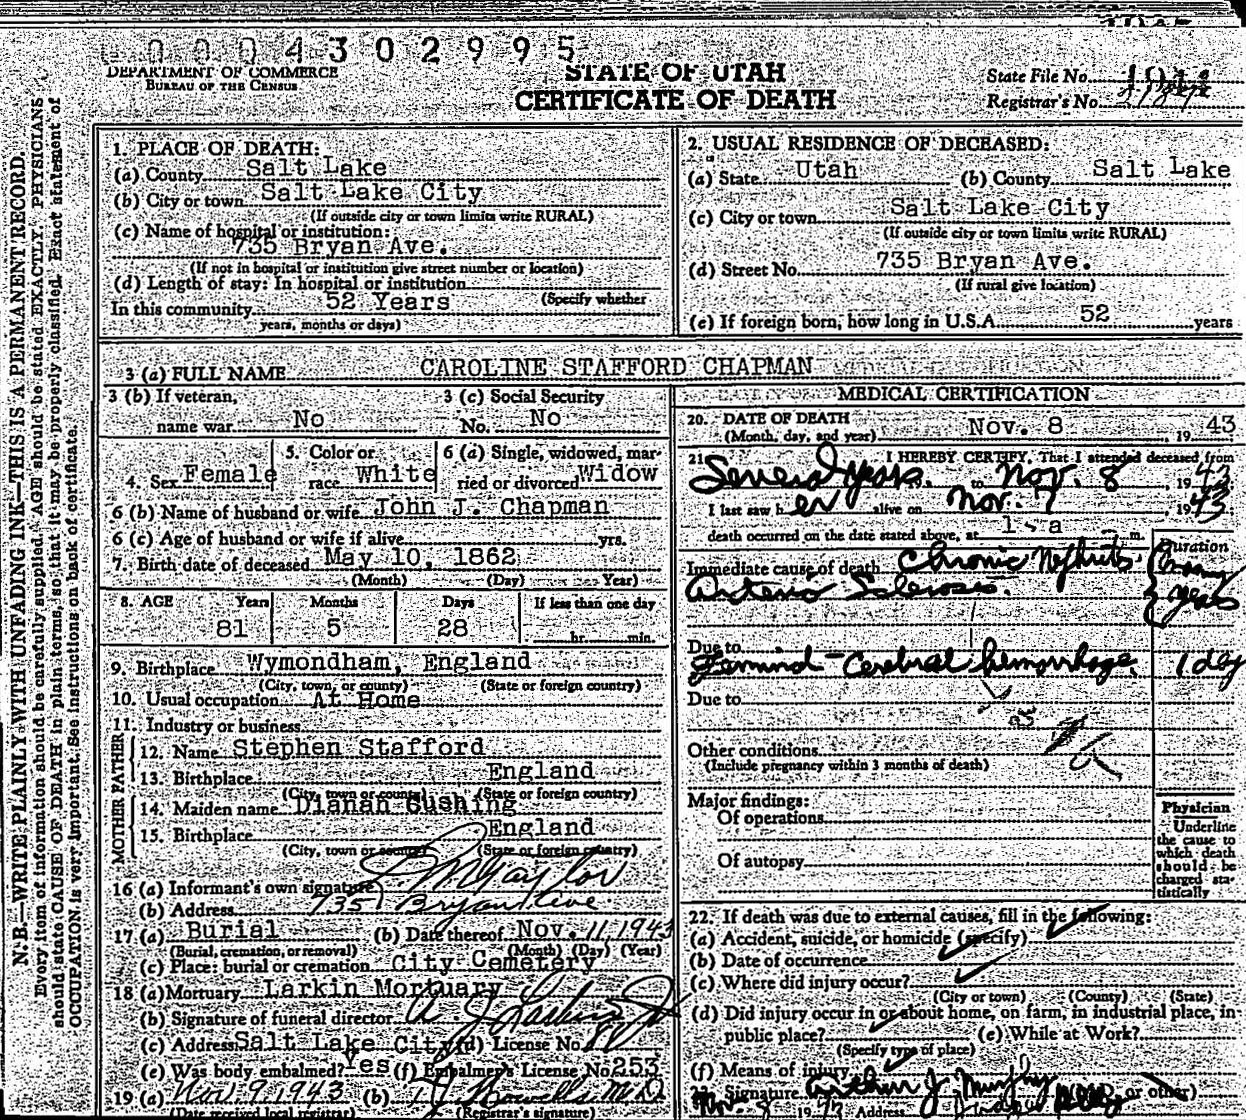 0004302995
DEPARTMENT OF COMMERCE
BUREAU OF THE CENSUS
STATE OF UTAH
CERTIFICATE OF DEATH
State File No.
Registrar's No.
N. B.—WRITE PLAINLY WITH UNFADING INK—THIS IS A PERMANENT RECORD.
Every item of information should be carefully supplied. AGE should be stated EXACTLY. PHYSICIANS
should state CAUSE OF DEATH in plain terms, so that it may be properly classified. Exact statement of
OCCUPATION is very important. See instructions on back of certificate.
1. PLACE OF DEATH:
(a) County Salt Lake
(b) City or town Salt Lake City
(If outside city or town limits write RURAL)
(c) Name of hospital or institution:
735 Bryan Ave.
(If not in hospital or institution give street number or location)
(d) Length of stay: In hospital or institution
(Specify whether
In this community 52 Years
years, months or days)
2. USUAL RESIDENCE OF DECEASED:
(a) State Utah (b) County Salt Lake
(c) City or town Salt Lake City
(If outside city or town limits write RURAL)
(d) Street No. 735 Bryan Ave.
(If rural give location)
(e) If foreign born, how long in U.S.A. 52 years
3 (a) FULL NAME CAROLINE STAFFORD CHAPMAN
3 (b) If veteran, name war No
3 (c) Social Security No. No
4. Sex Female
5. Color or race White
6 (a) Single, widowed, married or divorced Widow
6 (b) Name of husband or wife John J. Chapman
6 (c) Age of husband or wife if alive yrs.
7. Birth date of deceased May 10, 1862
(Month) (Day) (Year)
8. AGE Years Months Days If less than one day
81 5 28 hr. min.
9. Birthplace Wymondham, England
(City, town, or county) (State or foreign country)
10. Usual occupation At Home
11. Industry or business
FATHER
12. Name Stephen Stafford
13. Birthplace England
(City, town or county) (State or foreign country)
MOTHER
14. Maiden name Dianah Gushing
15. Birthplace England
(City, town or county) (State or foreign country)
16 (a) Informant's own signature
(b) Address 735 Bryan Ave
17 (a) Burial (b) Date thereof Nov. 11, 1943
(Burial, cremation, or removal) (Month) (Day) (Year)
(c) Place: burial or cremation City Cemetery
18 (a) Mortuary Larkin Mortuary
(b) Signature of funeral director
(c) Address Salt Lake City (d) License No.
(e) Was body embalmed? Yes (f) Embalmer's License No. 253
19 (a) Nov. 9, 1943 (b)
(Date received local registrar) (Registrar's signature)
MEDICAL CERTIFICATION
20. DATE OF DEATH
(Month, day, and year) Nov. 8, 19 43
21. I HEREBY CERTIFY, That I attended deceased from
Several years. to Nov. 8, 19 43
I last saw her alive on Nov. 7 19 43.
death occurred on the date stated above, at m.
Duration
Immediate cause of death Chronic Nephritis Many
Arterio Sclerosis. years
Due to
Terminal - Cerebral hemorrhage. 1 day
Due to
Other conditions
(Include pregnancy within 3 months of death)
Major findings:
Of operations
Of autopsy
Physician
Underline
the cause to
which death
should be
charged sta-
tistically
22. If death was due to external causes, fill in the following:
(a) Accident, suicide, or homicide (specify)
(b) Date of occurrence
(c) Where did injury occur?
(City or town) (County) (State)
(d) Did injury occur in or about home, on farm, in industrial place, in
public place? (e) While at Work?
(Specify type of place)
(f) Means of injury
23. Signature Arthur J. Murphy or other)
Nov. 8 19 43 Address